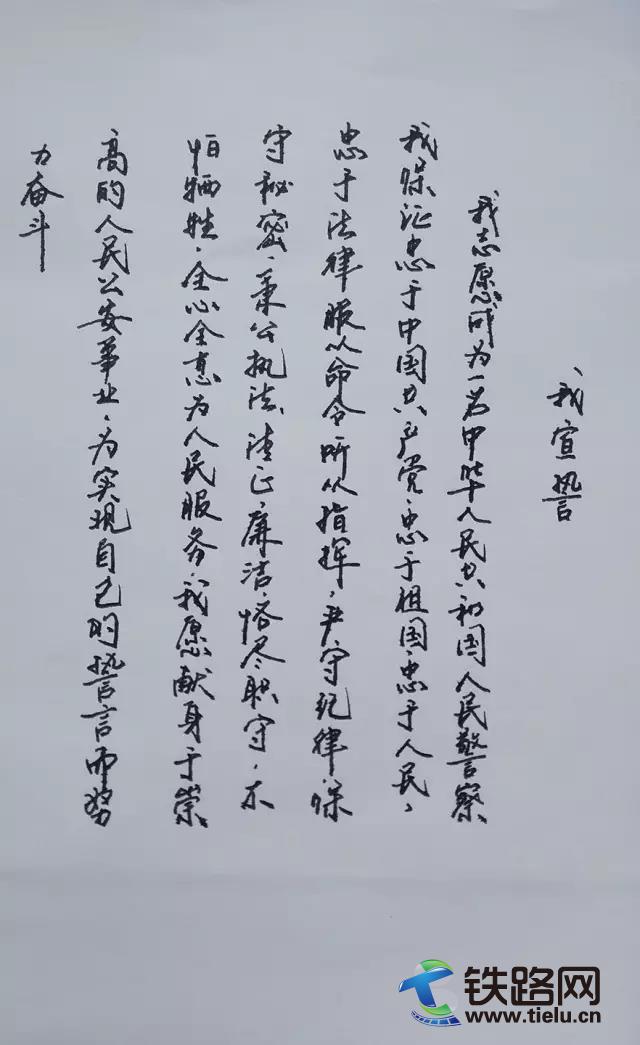 我宣誓
我志愿成为一名中华人民共和国人民警察、
我保证忠于中国共产党、忠于祖国、忠于人民、
忠于法律服从命令听从指挥，严守纪律、保
守秘密、秉公执法、清正廉洁、恪尽职守，不
怕牺牲，全心全意为人民服务、我愿献身于崇
高的人民公安事业，为实现自己的誓言而努
力奋斗
铁路网
www.tielu.cn